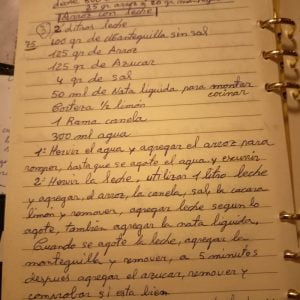 25 gr arroz
Arroz con leche
3) 2 litros leche
75 100 gr de Mantequilla sin sal
125 gr de Arroz
125 gr de Azucar
4 gr de sal
50 ml de Nata liquida para montar
cocinar
Corteza 1/2 limón
1 Rama canela
300 ml agua
1º Hervir el agua y agregar el arroz para
romper, hasta que se agote el agua y escurrir
2º Hervir la leche, utilizar 1 litro leche
y agregar, el arroz, la canela, sal, la cascara
limon y remover, agregar leche segun lo
agote, tambien agregar la nata liquida,
Cuando se agote la leche, agregar la
mantequilla y remover, a 5 minutos
despues agregar el azucar, remover y
comprobar si esta bien